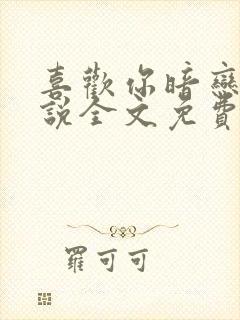 喜歡你暗戀
說全文免費
羅可可